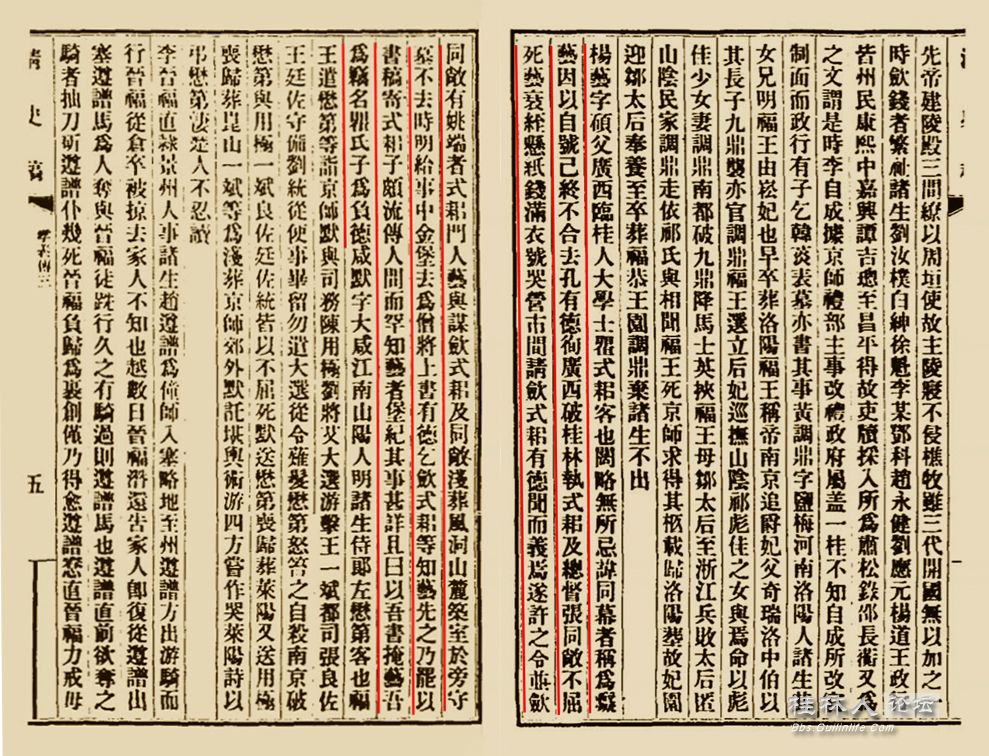 先帝建陵殿三間繚以周垣使故主陵寢不侵樵牧雖三代開國無以加之一
時斂錢者繁祉諸生劉汝樸白紳徐魁李某鄧科趙永健劉應元楊道王政行
皆州民康熙中嘉興譚吉璁至昌平得故吏牘採入所爲肅松錄邵長蘅又爲
之文謂是時李自成據京師禮部主事改禮政府屬蓋一桂不知自成所改官
制面而政行有子乞韓菼表墓亦書其事黃調鼎字鹽梅河南洛陽人諸生其
女兄明福王由崧妃也早卒葬洛陽福王稱帝南京追爵妃父奇瑞洛中伯以
其長子九鼎襲亦官調鼎福王選立后妃巡撫山陰祁彪佳之女與焉命以彪
佳少女妻調鼎南都破九鼎降馬士英挾福王母鄒太后至浙江兵敗太后匿
山陰民家調鼎走依祁氏與相聞福王死京師求得其柩載歸洛陽葬故妃園
迎鄒太后奉養至卒葬福恭王園調鼎棄諸生不出
楊藝字碩父廣西臨桂人大學士瞿式耜客也闊略無所忌諱同幕者稱爲癡
藝因以自號己終不合去孔有德徇廣西破桂林執式耜及總督張同敞不屈
死藝衰絰懸紙錢滿衣號哭營市間請斂式耜有德聞而義焉遂許之令並斂
同敞有姚端者式耜門人藝與謀斂式耜及同敞淺葬風洞山麓築室於旁守
墓不去時明給事中金堡去爲僧將上書有德乞斂式耜等知藝先之乃罷以
書稿寄式耜子頗流傳人間而罕知藝者堡紀其事甚詳且曰以吾書掩藝吾
爲竊名瞿氏子爲負德咸默字大咸江南山陽人明諸生侍郎左懋第客也福
王遣懋第等詣京師默與司務陳用極劉將艾大選游擊王一斌都司張良佐
王廷佐守備劉統從使事畢留勿遣大選從令薙髮懋第怒笞之自殺南京破
懋第與用極一斌良佐廷佐統皆以不屈死默送懋第喪歸葬萊陽又送用極
喪歸葬崑山一斌等爲淺葬京師郊外默託堪輿術游四方嘗作哭萊陽詩以
弔懋第淒楚人不忍讀
李晉福直隸景州人事諸生趙遵譜爲僮師入塞略地至州遵譜方出游騎而
行晉福從倉卒被掠去家人不知也越數日晉福潛還告家人卽復從遵譜出
塞遵譜馬爲人奪與晉福徒跣行久之有騎過則遵譜馬也遵譜直前欲奪之
騎者抽刀斫遵譜仆幾死晉福負歸爲裹創僞乃得愈遵譜憝直晉福力戒毋
清史稿
孝義傳三
五
桂林人论坛
Bbs.Guilinlife.Com